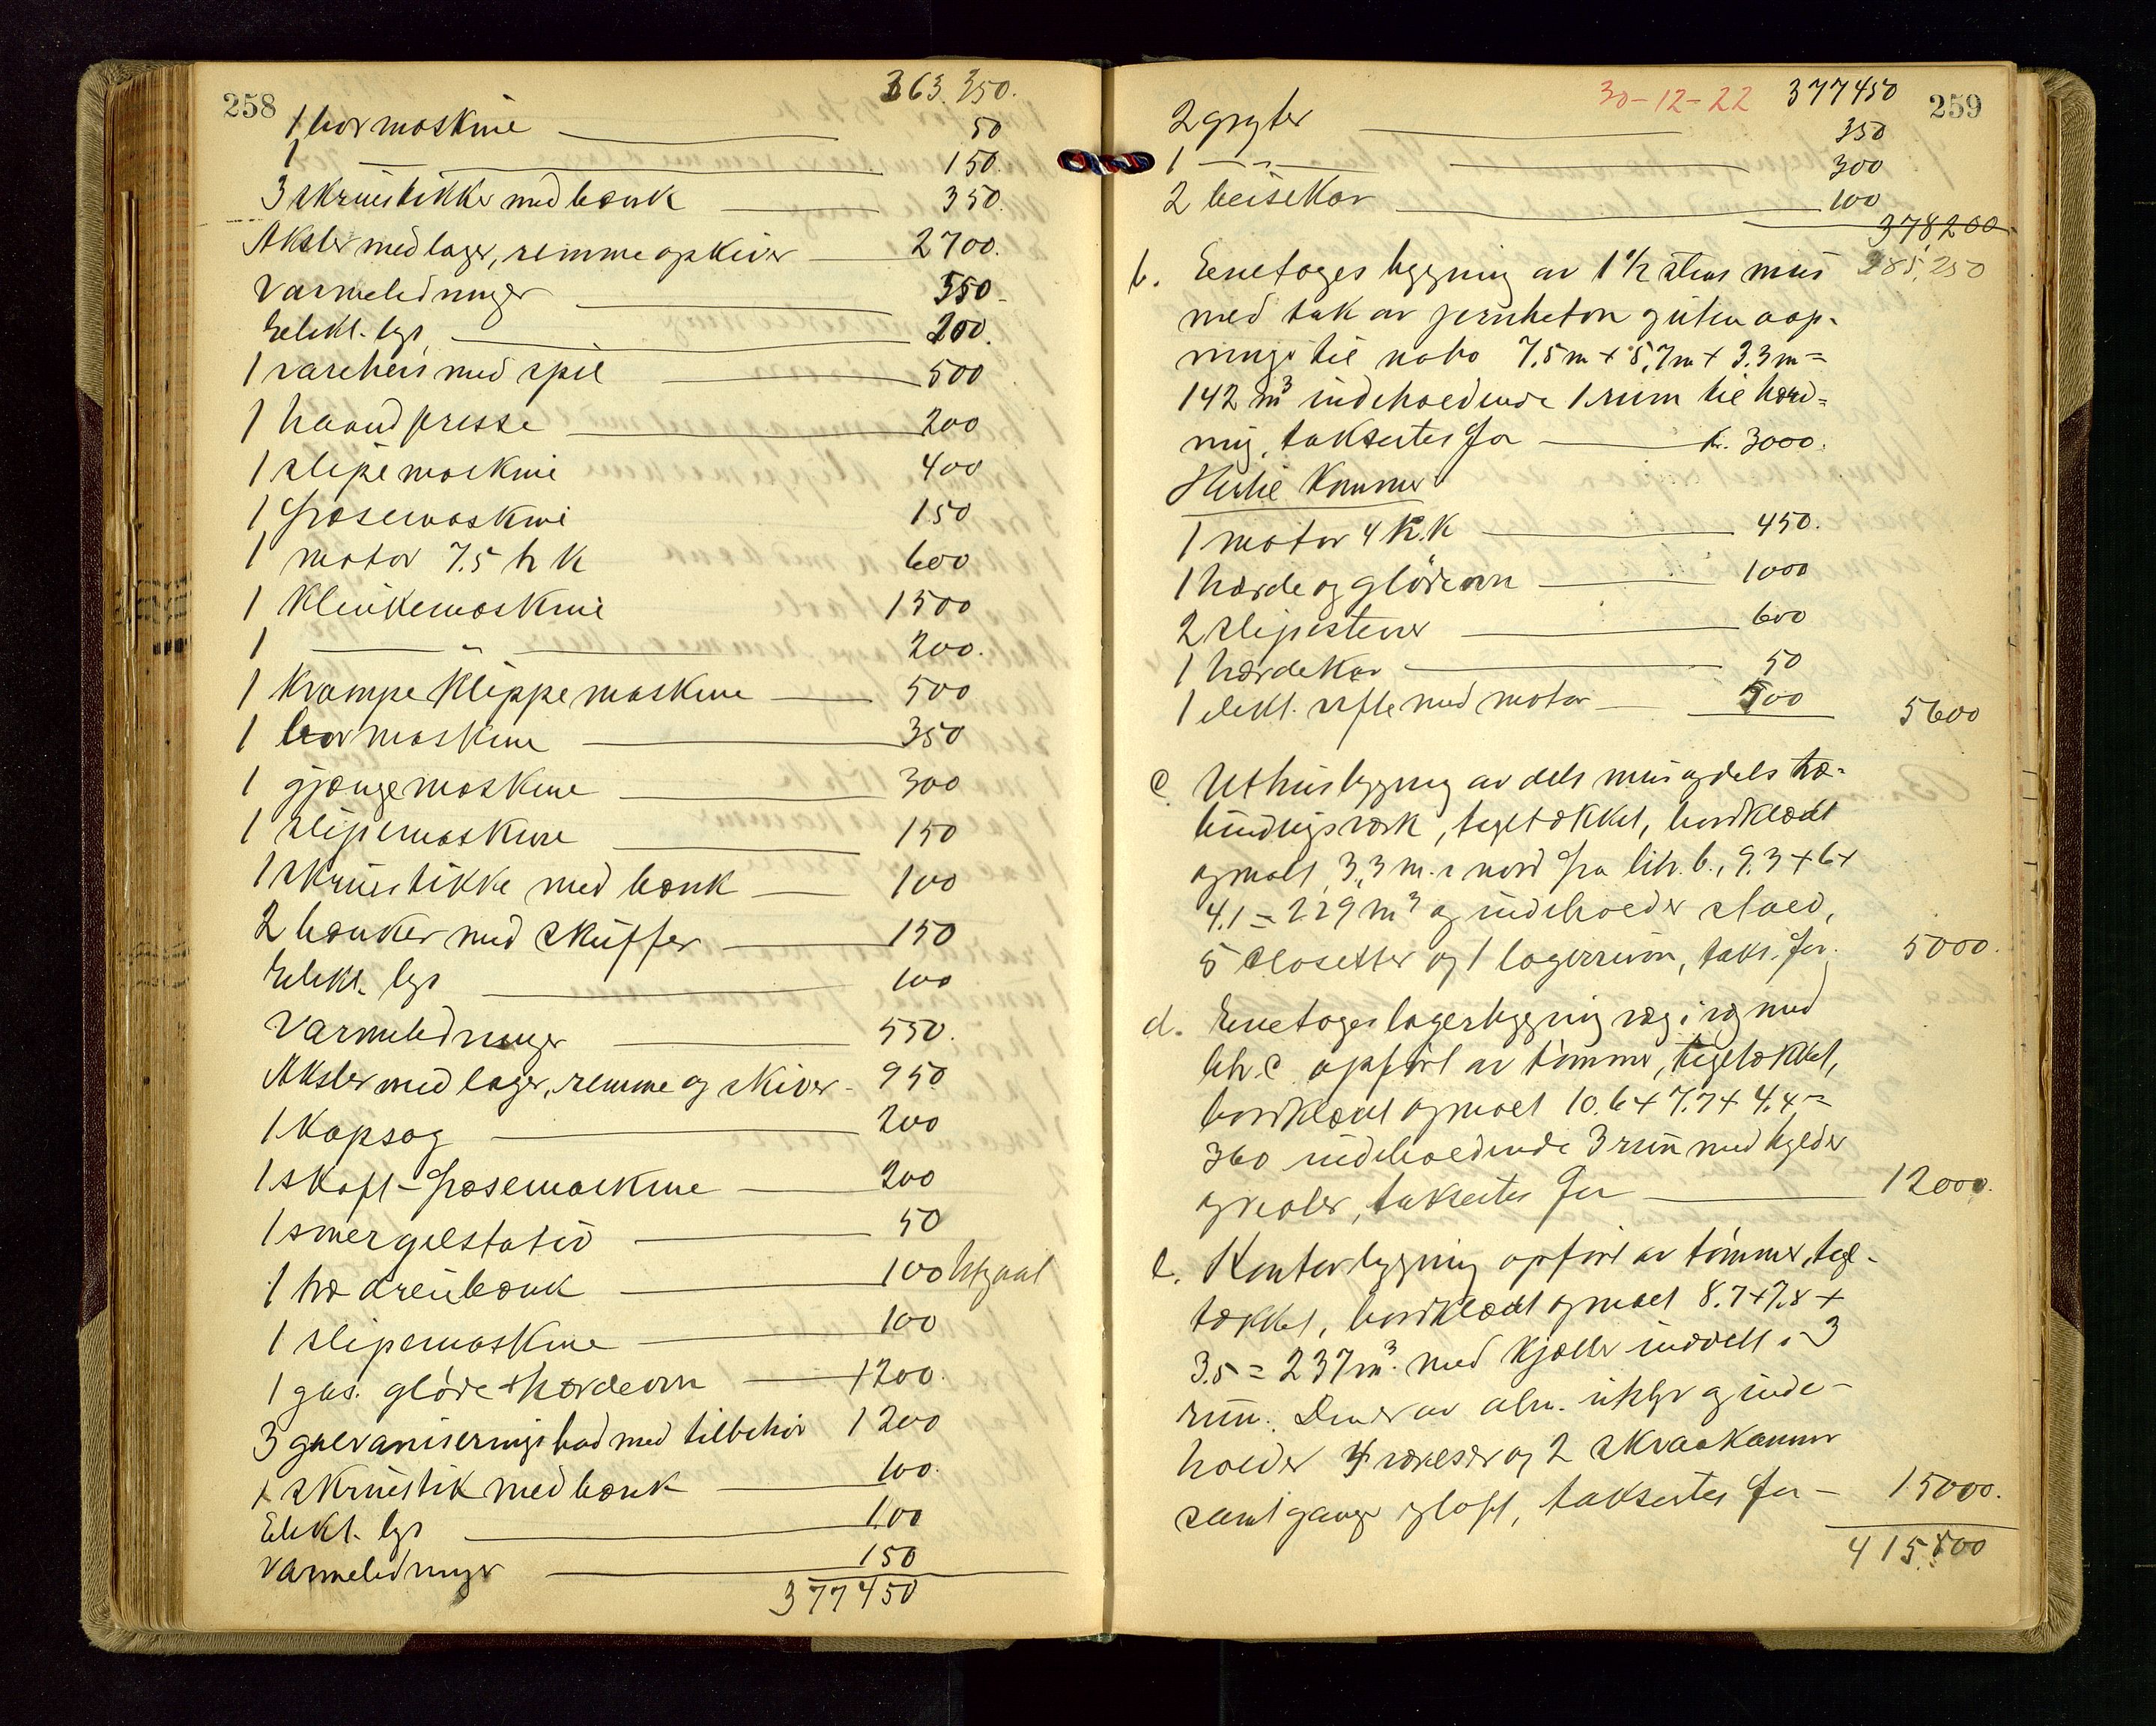 258
363.350.
1 bormaskine 50
1 — 150.
3 skruestikker med bænk 350.
Aksler med lager, remme op kiver 2700.
Varmeledninger 350.
Elekt. lys 200.
1 vareheis med spil 500
1 haandpresse 200
1 slipemaskine 400
1 fræsemaskine 150
1 motor 7.5 h k 600
1 klinkemaskine 1500
1 — „ — 200.
1 krampe klippemaskine 500
1 bormaskine 350
1 gjængemaskine 300
1 slipemaskine 150
1 skruestikke med bænk 100
2 bænker med skuffer 150
Elekt. lys 100
Varmeledninger 550.
Aksler med lager, remme og skiver 950
1 kapsag 200
1 skaft-fræsemaskine 200
1 smergelstativ 50
1 træ dreiebænk 100 Utgaat
1 slipemaskine 100
1 gas. gløde + hærdeovn 1200.
3 galvaniseringsbad med tilbehør 1200
1 skruestik med bænk 100.
Elekt. lys 100
Varmeledninger 150
377450
30-12-22 377450 259
2 gryter 350
1 — „ — 300
2 beisekar 100
378200
b. Enetages bygning av 1 1/2 stens mur 385,250
med tak av jernbeton og uten aap-
nings til nabo 7.5 m + 5,7 m + 3.3 m =
142 m³ indeholdende 1 rum til hærd-
ning, takseres for kr. 3000.
Hertil kommer
1 motor 4 h.k 450.
1 hærde og glødeovn 1000
2 slipestener 600
1 hærdekar 50
1 elekt. vifte med motor 500 5600
c. Uthusbygning av dels mur og dels træ-
bindingsværk, teglækket, bordklædt
og malt, 3,3 m. i nord fra litr. b., 9.3 + 6 +
4.1 = 229 m³ og indeholder stald,
5 closetter og 1 lagerrum, taks. for. 5000.
d. Enetages lagerbygning væg i væg med
litr. c opført av tømmer, tegltækket,
bordklædt og malt 10.6 + 7.7 + 4.4 =
360 indeholdende 3 rum med hylder
og reoler, takseres for 12000.
e. Kontorbygning opført av tømmer, tegl-
tækket, bordklædt og malt 8.7 + 7.8 +
3.5 = 237 m³. med kjælder inddelt i 3
rum. Den er av alm. utstyr og inde-
holder 4 værelser og 2 skraakammer
samt gange og loft, takseres for — 15000.
415.800